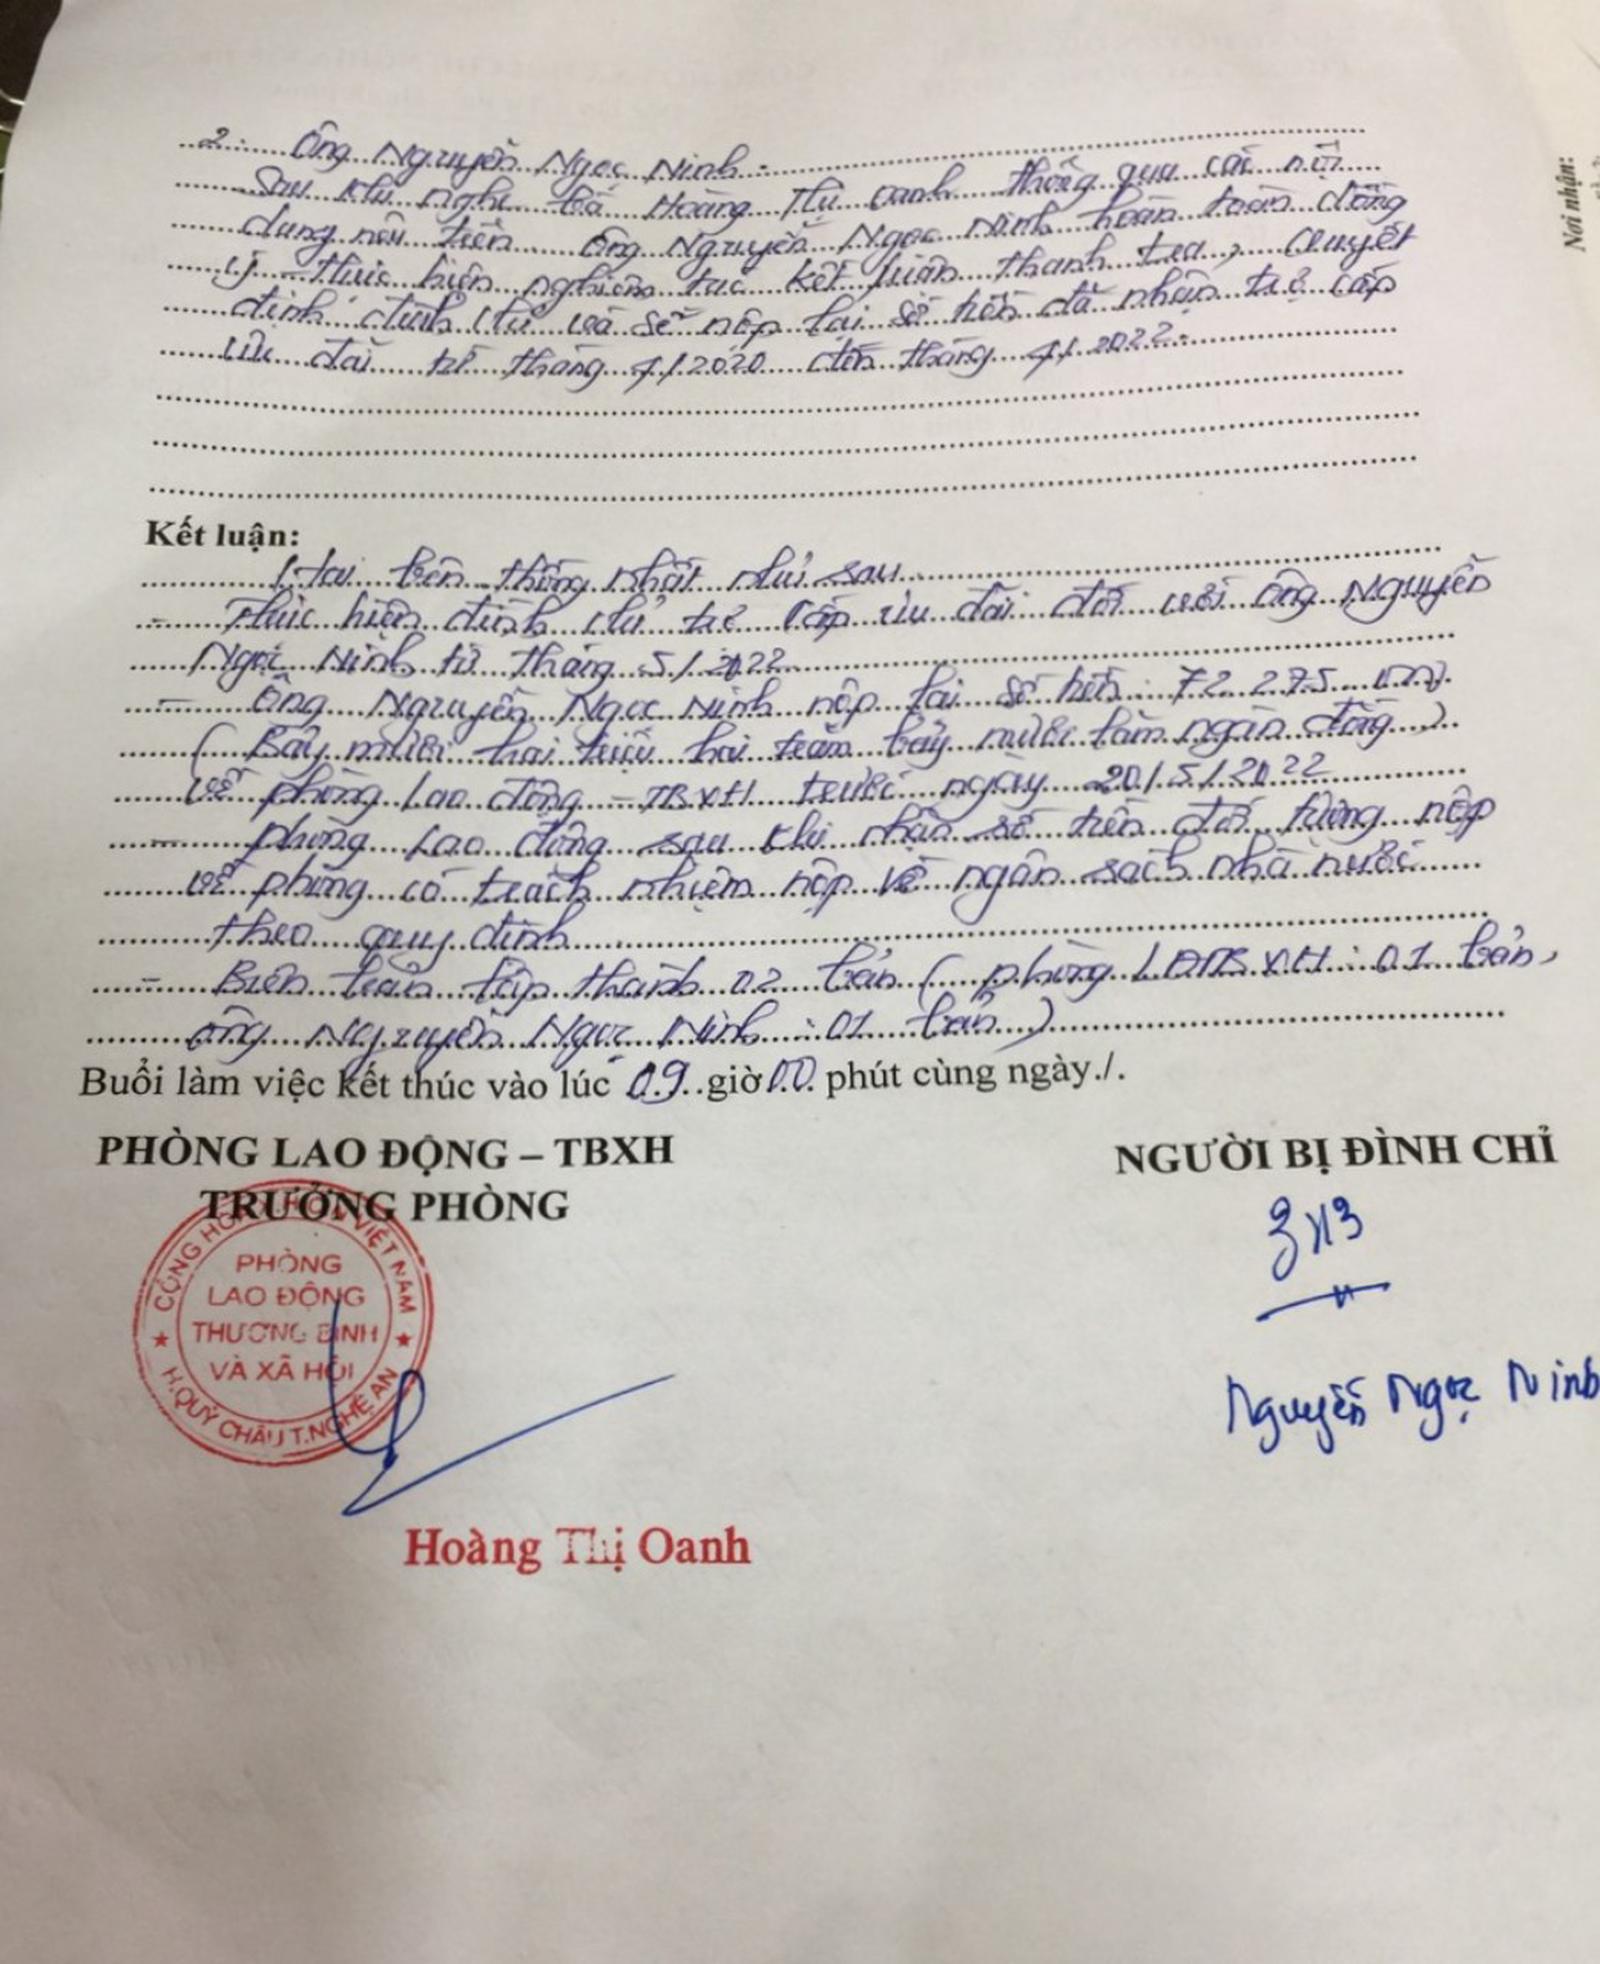 2. Ông Nguyễn Ngọc Ninh.
Sau khi nghe bà Hoàng Thị Oanh thông qua các nội
dung nêu trên ông Nguyễn Ngọc Ninh hoàn toàn đồng
ý thực hiện nghiêm túc kết luận thanh tra, Quyết
định đình chỉ và sẽ nộp lại số tiền đã nhận trợ cấp
ưu đãi từ tháng /2020 đến tháng 4/2022.
Kết luận:
Hai bên thống nhất như sau
- Thực hiện đình chỉ trợ cấp ưu đãi đối với ông Nguyễn
Ngọc Ninh từ tháng 5/2022
- Ông Nguyễn Ngọc Ninh nộp lại số tiền: 72.275
(Bảy mươi hai triệu hai trăm bảy mươi lăm ngàn đồng)
về phòng Lao động - TBXH trước ngày 20/5/2022
- Phòng Lao động sau khi nhận số tiền đối tượng nộp
về phòng có trách nhiệm nộp về ngân sách nhà nước
theo quy định
- Biên bản lập thành 02 bản (phòng LĐTBXH: 01 bản,
ông Nguyễn Ngọc Ninh: 01 bản)
Buổi làm việc kết thúc vào lúc 09 giờ 00 phút cùng ngày./.
PHÒNG LAO ĐỘNG – TBXH
TRƯỞNG PHÒNG
NGƯỜI BỊ ĐÌNH CHỈ
CỘNG HÒA VIỆT NAM
PHÒNG
LAO ĐỘNG
THƯƠNG BINH
VÀ XÃ HỘI
H.QUỲ CHÂU T.NGHỆ AN
Nguyễn Ngọc Ninh
Hoàng Thị Oanh
Nơi nhận: